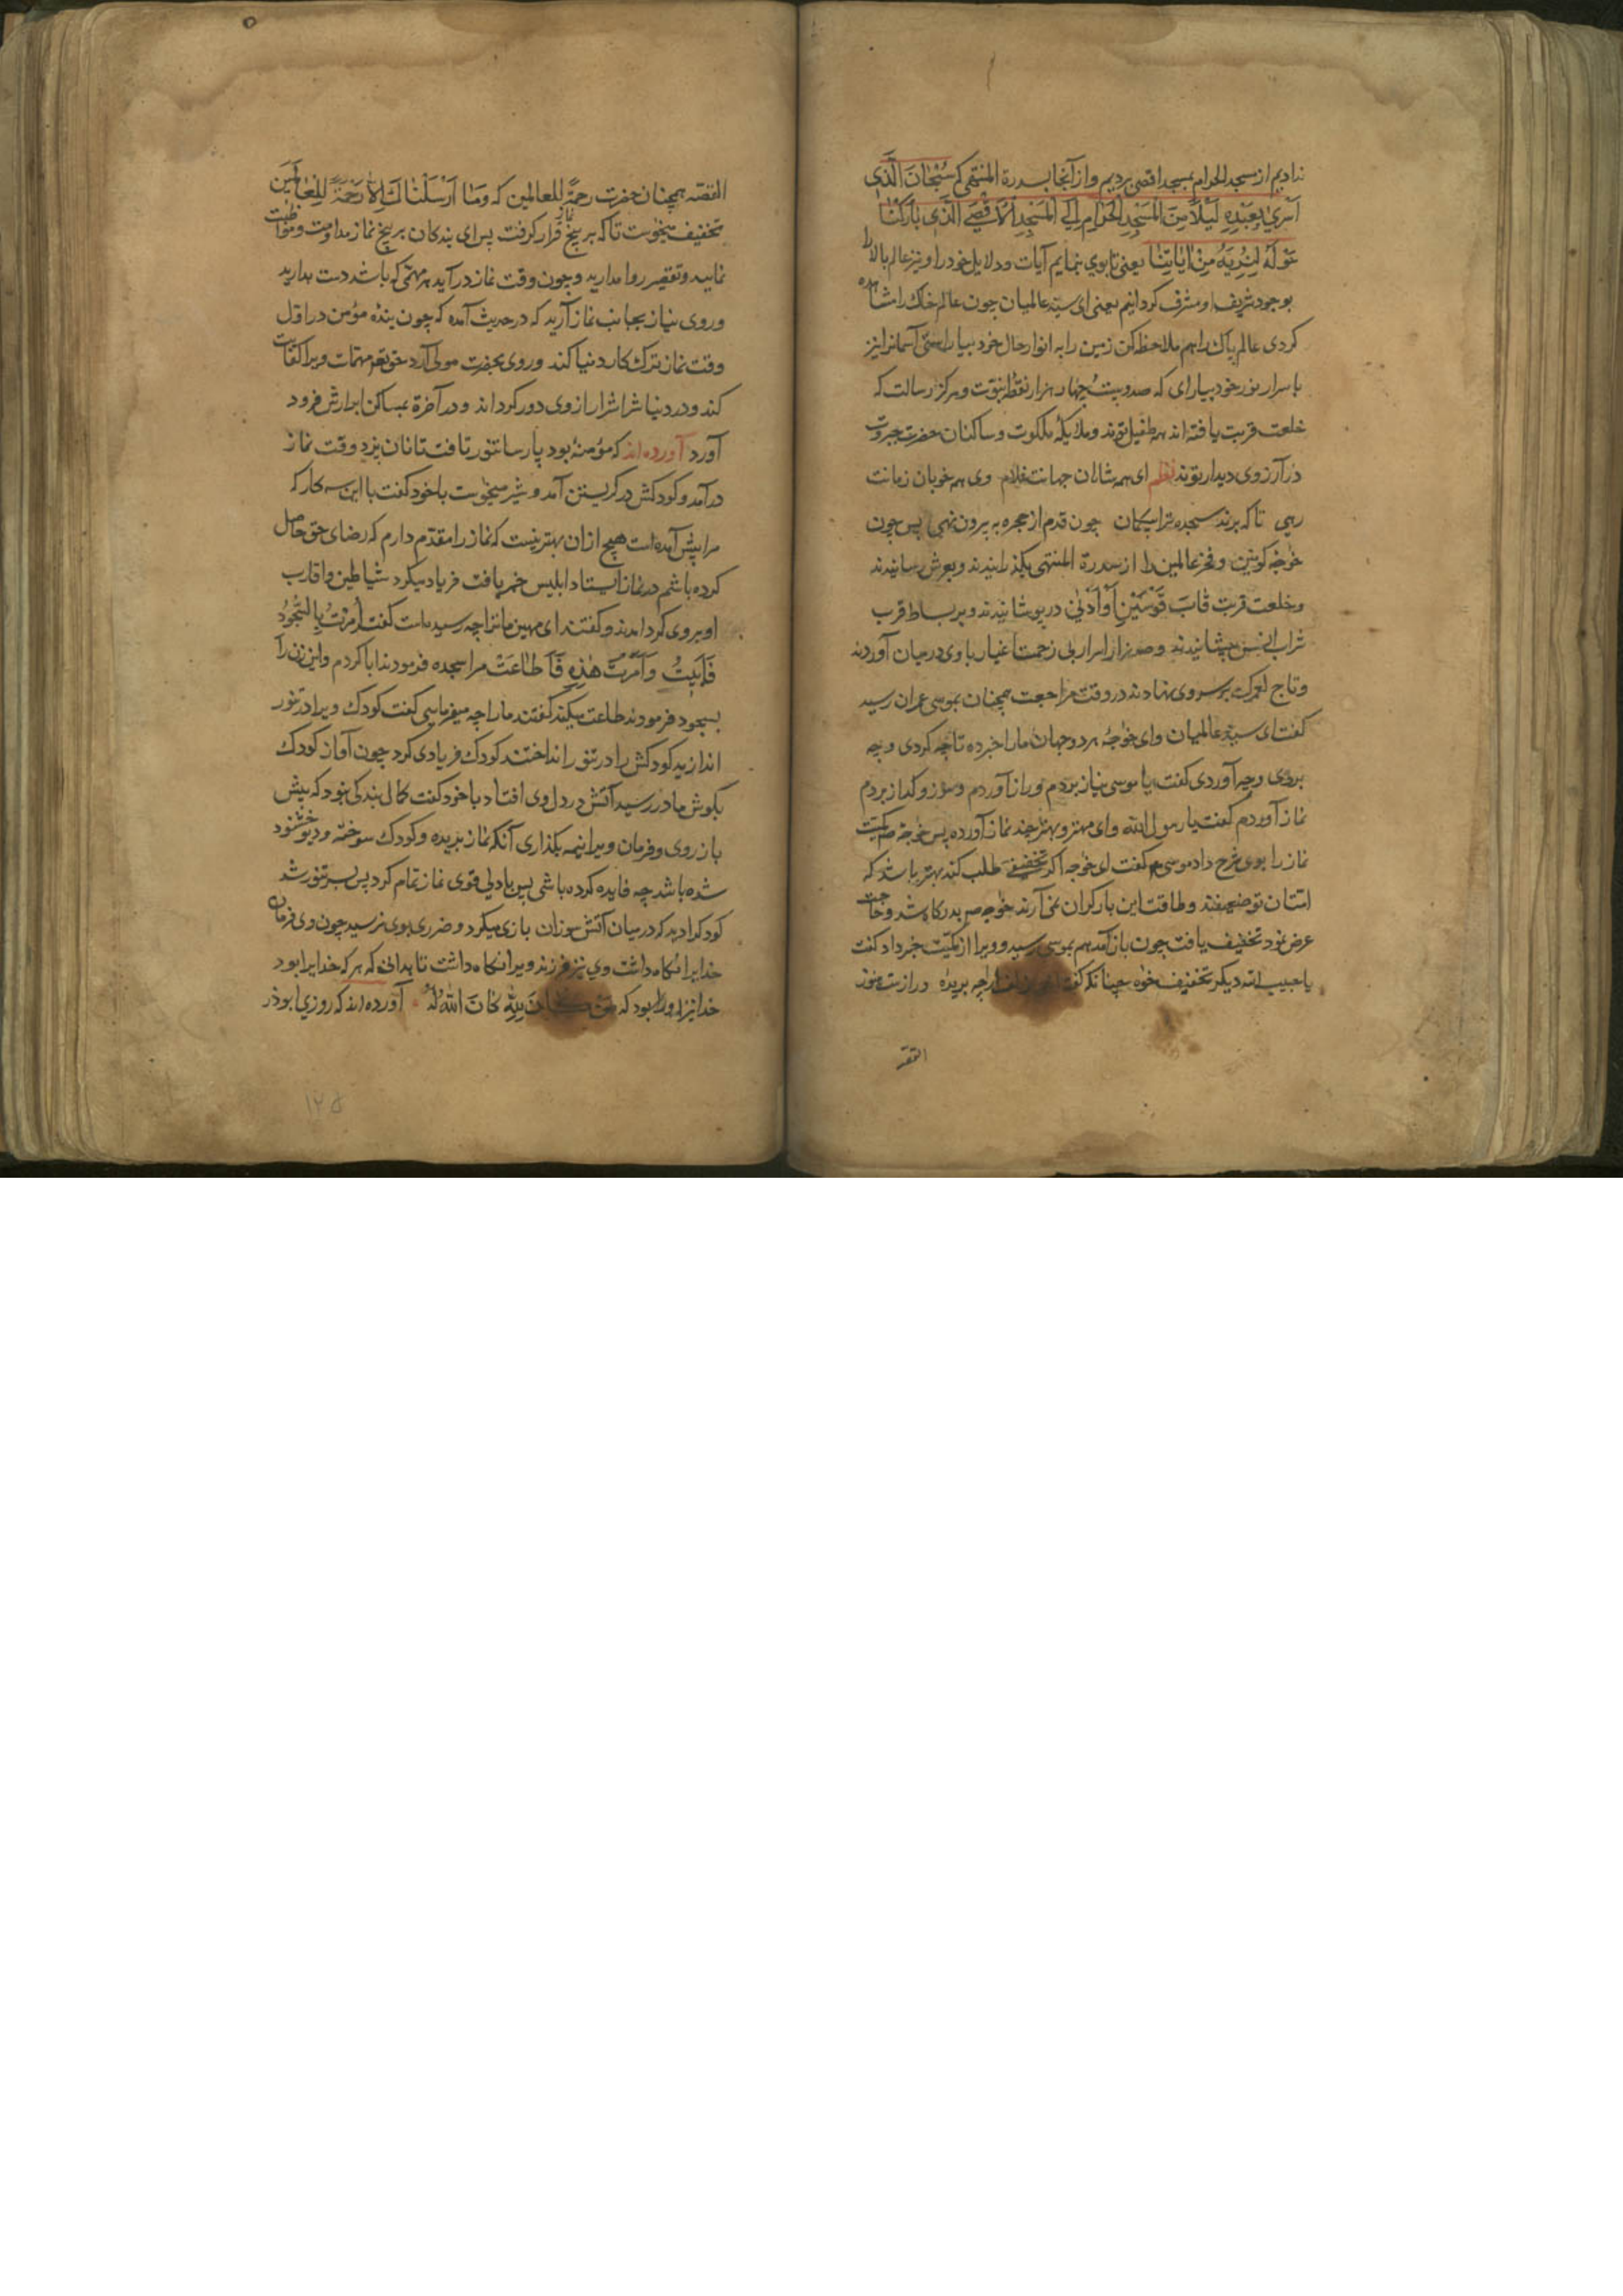 ندادیم از مسجد الحرام بمسجد اقصی بردیم و از آنجا بسدرة المنتهی که سُبْحَانَ الَّذِی
اَسْرَی بِعَبْدِهِ لَیْلًا مِنَ الْمَسْجِدِ الْحَرَامِ اِلَی الْمَسْجِدِ الْاَقْصَی الَّذِی بَارَکْنَا
حَوْلَهُ لِنُرِیَهُ مِنْ آیَاتِنَا یعنی تا بوی نمایم آیات و دلایل خود را و نیز عالم بالا را
بوجود شریف او مشرف گردانیم یعنی ای سید عالمیان چون عالم خاک را مشاهده
کردی عالم پاک را هم ملاحظه کن زمین را به انوار حال خود بیاراستی آسمانرا نیز
باسرار نور خود بیارای که صد و بیست و چهار هزار نقطه نبوت و مرکز رسالت که
خلعت قربت یافته اند همه طفیل تو اند و ملایکه ملکوت و ساکنان حضرت جبروت
در آرزوی دیدار تو اند نظم ای همه شاهان جهانت غلام وی همه خوبان زمانت
رهی تا که برند سجده ترا بیکمان چون قدم از حجره به بیرون نهی پس چون
خواجه کونین و فخر عالمین را از سدرة المنتهی بگذرانیدند و بعرش رسانیدند
و خلعت قربت قَابَ قَوْسَیْنِ اَوْ اَدْنَی در پوشانیدند و بر بساط قرب
شراب انس چشانیدند و صد هزار اسرار بی زحمت اغیار با وی در میان آوردند
و تاج لعمرک بر سر وی نهادند در وقت مراجعت همچنان بموسی عمران رسید
گفت ای سید عالمیان و ای خواجه هر دو جهان ما را خبر ده تا چه کردی و چه
بردی و چه آوردی گفت یا موسی نیاز بردم و راز آوردم و سوز و گداز بردم
نماز آوردم گفت یا رسول الله و ای مهتر و بهتر چند نماز آورده پس خواجه صم کمیت
نماز را بوی شرح داد موسی گفت ای خواجه اگر تخفیف طلب کند بهتر باشد که
امتان تو ضعیفند و طاقت این بار گران نمی آرند خواجه صم بدرگاه شد و حاجت
عرض نمود تخفیف یافت چون باز آمد هم بموسی رسید و ویرا از کمیت خبر داد گفت
یا حبیب الله دیگر تخفیف خواه چنانکه گفته زلف ارچه بریده و راز است هنوز
القصه
القصه همچنان حضرت رحمةً للعالمین که وَمَا اَرْسَلْنَاکَ اِلَّا رَحْمَةً لِلْعَالَمِین
تخفیف میخواست تا که بر پنج نماز قرار گرفت پس ای بندگان بر پنج نماز مداومت و مواظبت
نمایید و تقصیر روا مدارید و چون وقت نماز در آید هر مهمی که باشد دست بدارید
و روی نیاز بجانب نماز آرید که در حدیث آمده که چون بنده مؤمن در اول
وقت نماز ترک کار دنیا کند و روی بحضرت مولی آرد حق تعم مهمات ویرا کفایت
کند و در دنیا شر اشرار از وی دور گرداند و در آخرة بمساکن ابرارش فرود
آورد آورده اند که مؤمنه بود پارسا تنور تافت تا نان پزد وقت نماز
در آمد و کودکش در گریستن آمد و شیر میخواست با خود گفت با این سه کار که
مرا پیش آمده است هیچ از ان بهتر نیست که نماز را مقدم دارم که رضای حق حاصل
کرده باشم در نماز ایستاد ابلیس خبر یافت فریاد میکرد شیاطین و اقارب
او بر وی گرد آمدند و گفتند ای مهین ما ترا چه رسیده است گفت اُمِرْتُ بِالسُّجُودُ
فَاَبَیْتُ وَاُمِرَتْ هٰذِهِ فَاَطَاعَتْ مرا سجده فرمودند ابا کردم و این زن را
بسجود فرمودند طاعت میکند گفتند ما را چه میفرمایی گفت کودک ویرا در تنور
اندازید کودکش را در تنور انداختند کودک فریادی کرد چون آواز کودک
بگوش مادر رسید آتش در دل وی افتاد با خود گفت کمال بندگی نبود که پیش
باز روی و فرمان ویرا نیمه بگذاری آنگه نماز بریده و کودک سوخته و دیو خشنود
شده باشد چه فایده کرده باشی پس با دلی قوی نماز تمام کرد پس بسر تنور شد
کودک را دید که در میان آتش سوزان بازی میکرد و ضرری بوی نرسید چون وی فرمان
خدایرا نگاه داشت وی نیز فرزند ویرا نگاه داشت تا بدانی که هر که خدایرا بود
خدا نیز او را بود که مَنْ کَانَ لِلّٰهِ کَانَ اللهُ لَهُ آورده اند که روزی ابوذر
۱۲۵